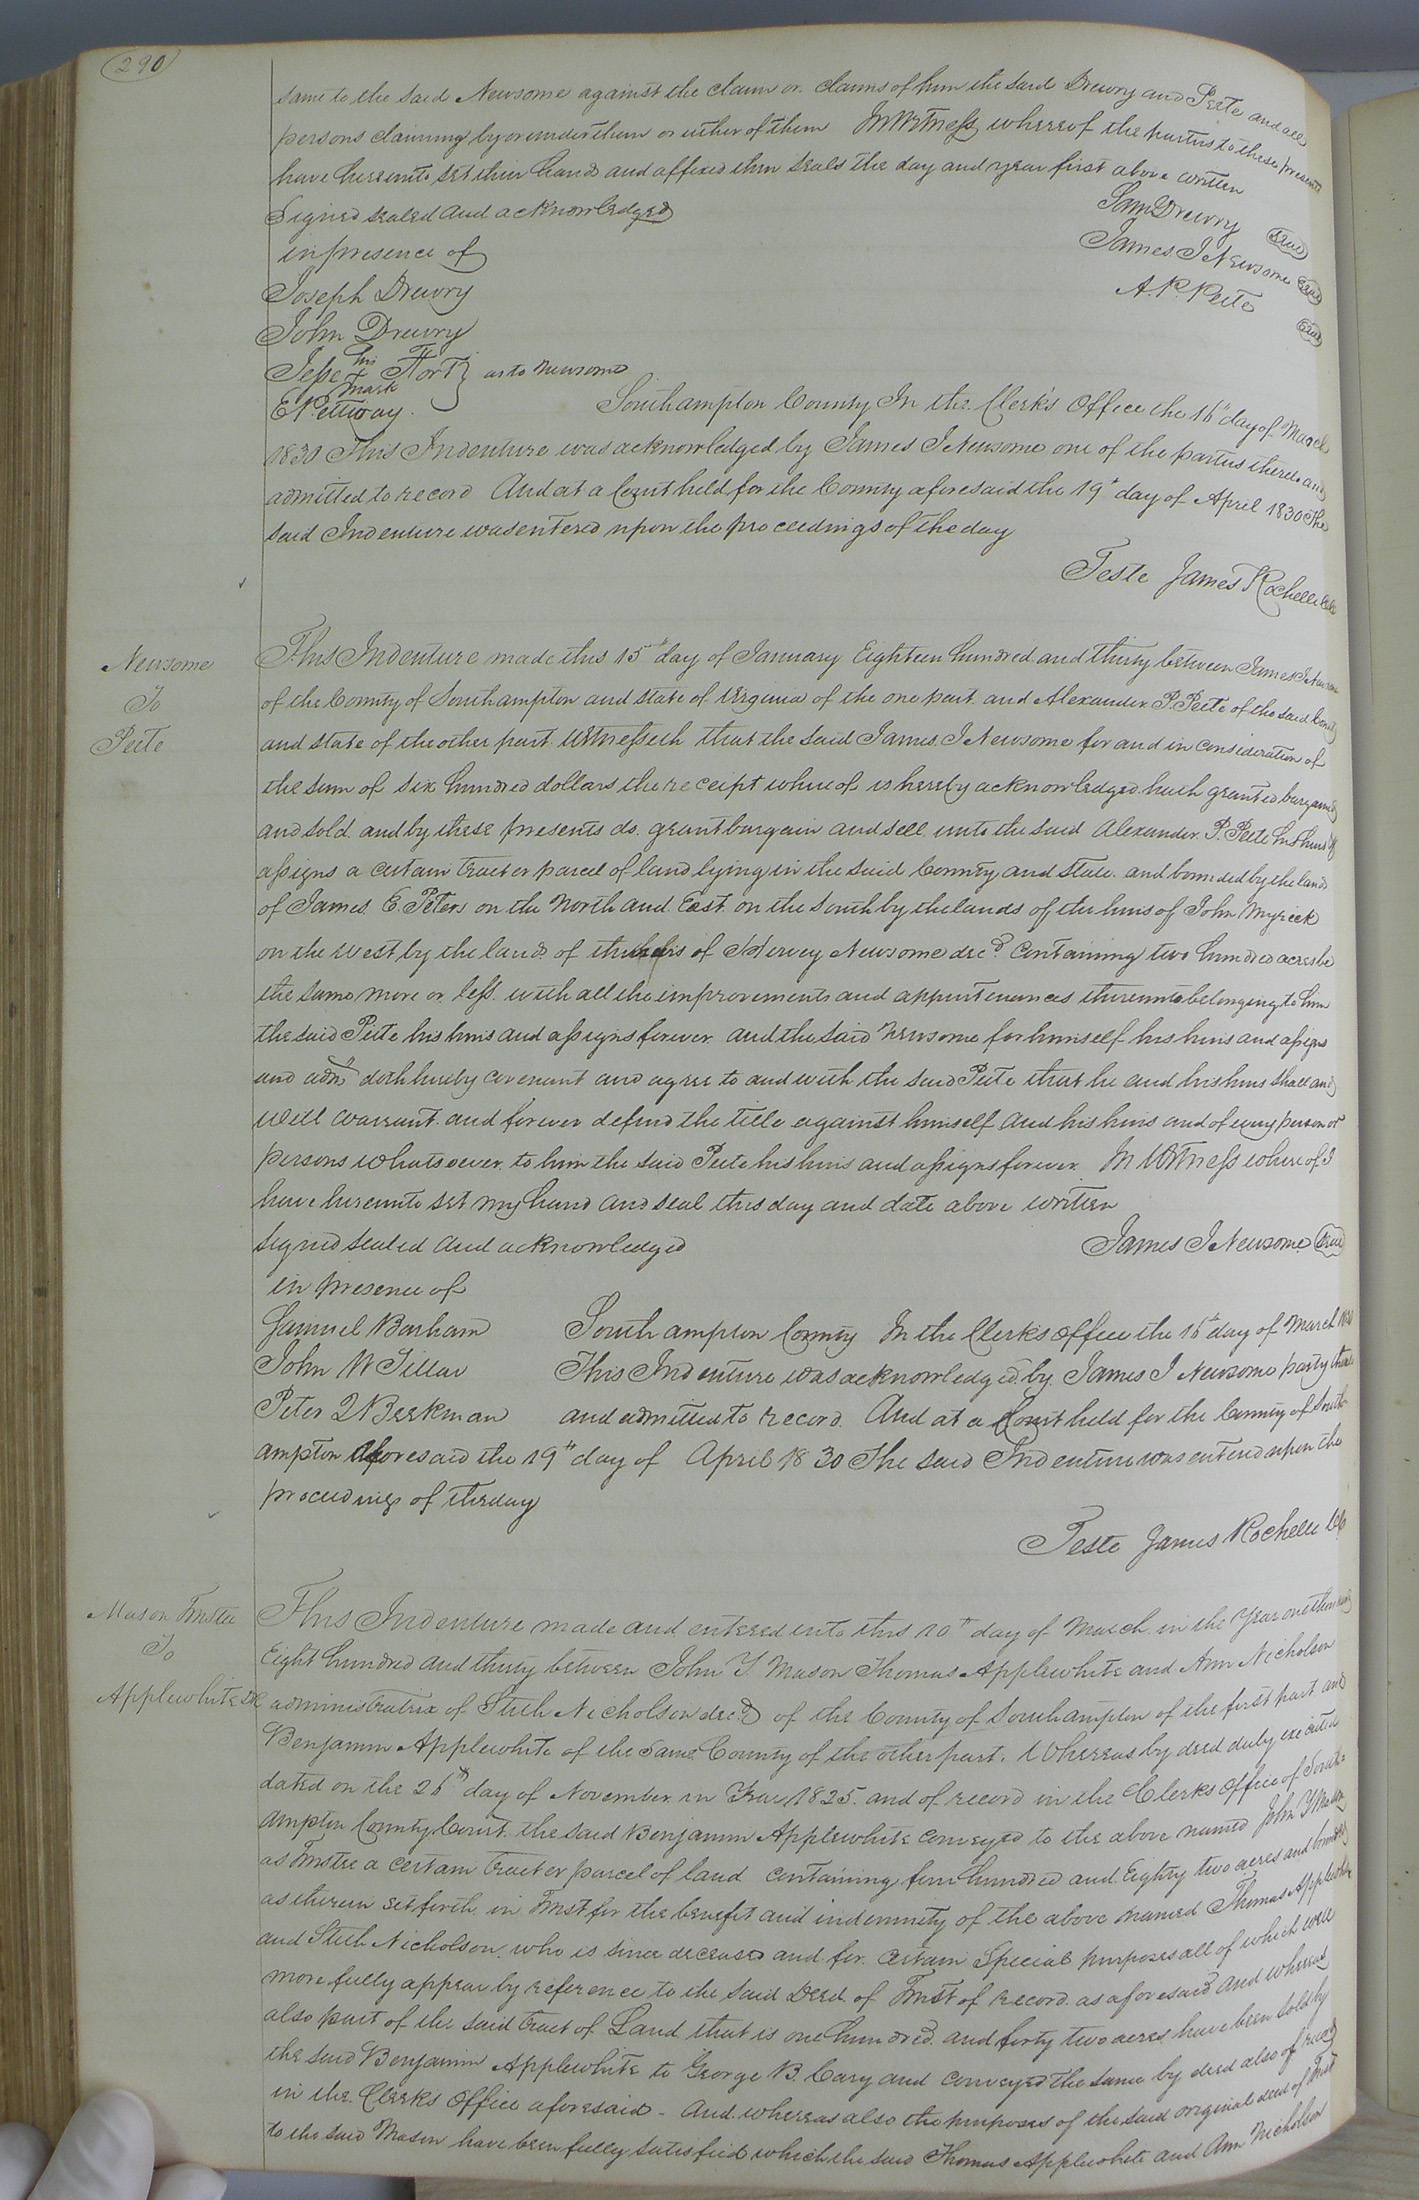 290
same to the said Newsome against the claim or claims of him the said Drewry and Peete and all
persons claiming by or under them or either of them In Witness whereof the parties to these presents
have hereunto set their hands and affixed their seals the day and year first above written
Signed sealed and acknowledged
in presence of
Sam Drewry Seal
James J Newsome Seal
A. P. Peete Seal
Joseph Drewry
John Drewry
Jesse his mark Fort } as to Newsome
E Pettway.
Southampton County In the Clerk's Office the 16th day of March
1830 This Indenture was acknowledged by James J Newsome one of the parties thereto and
admitted to record And at a Court held for the County aforesaid the 19th day of April 1830 The
said Indenture was entered upon the proceedings of the day
Teste James Rochelle
Newsome
To
Peete
This Indenture made this 15th day of January Eighteen hundred and thirty between James J Newsome
of the County of Southampton and state of Virginia of the one part and Alexander P. Peete of the said County
and state of the other part Witnesseth that the said James J Newsome for and in consideration of
the sum of six hundred dollars the receipt whereof is hereby acknowledged hath granted bargained
and sold and by these presents do grant bargain and sell unto the said Alexander P. Peete his heirs &
assigns a certain tract or parcel of land lying in the said County and State and bounded by the lands
of James E. Peters on the North and East on the South by the lands of the heirs of John Myrick
on the West by the lands of the heirs of Hervey Newsome decd containing two hundred acres be
the same more or less with all the improvements and appurtenances thereunto belonging to him
the said Peete his heirs and assigns forever and the said Newsome for himself his heirs and assigns
and admrs doth hereby covenant and agree to and with the said Peete that he and his heirs shall and
will warrant and forever defend the title against himself and his heirs and of every person or
persons whatsoever to him the said Peete his heirs and assigns forever In Witness whereof I
have hereunto set my hand and seal this day and date above written
Signed sealed and acknowledged
James J Newsome Seal
in presence of
Samuel Barham
John W Tillar
Peter Q Beekman
Southampton County In the Clerk's Office the 16th day of March 1830
This Indenture was acknowledged by James J Newsome party thereto
and admitted to record And at a Court held for the County of South
ampton aforesaid the 19th day of April 1830 The said Indenture was entered upon the
proceedings of the day
Teste James Rochelle
Mason Trustee
To
Applewhite &c
This Indenture made and entered into this 10th day of March in the Year one thousand
Eight hundred and thirty between John Y. Mason Thomas Applewhite and Ann Nicholson
administratrix of Stith Nicholson decd of the County of Southampton of the first part and
Benjamin Applewhite of the same County of the other part. Whereas by deed duly executed
dated on the 26th day of November in Year 1825. and of record in the Clerks Office of South=
ampton County Court. the said Benjamin Applewhite conveyed to the above named John Y Mason
as Trustee a certain tract or parcel of land containing four hundred and Eighty two acres and bounded
as therein set forth in Trust for the benefit and indemnity of the above named Thomas Applewhite
and Stith Nicholson, who is since deceased and for certain Special purposes all of which will
more fully appear by reference to the said Deed of Trust of record as aforesaid and whereas
also part of the said tract of Land that is one hundred and forty two acres have been sold by
the said Benjamin Applewhite to George B. Cary and conveyed the same by deed also of record
in the Clerks Office aforesaid - And whereas also the purposes of the said original deed of Trust
to the said Mason have been fully satisfied which the said Thomas Applewhite and Ann Nicholson